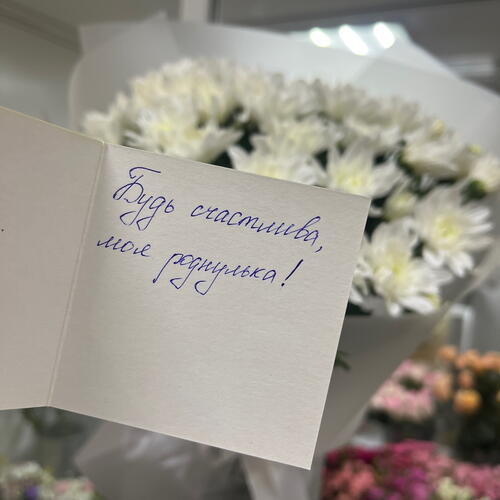 Будь счастлива,
моя роднулька!